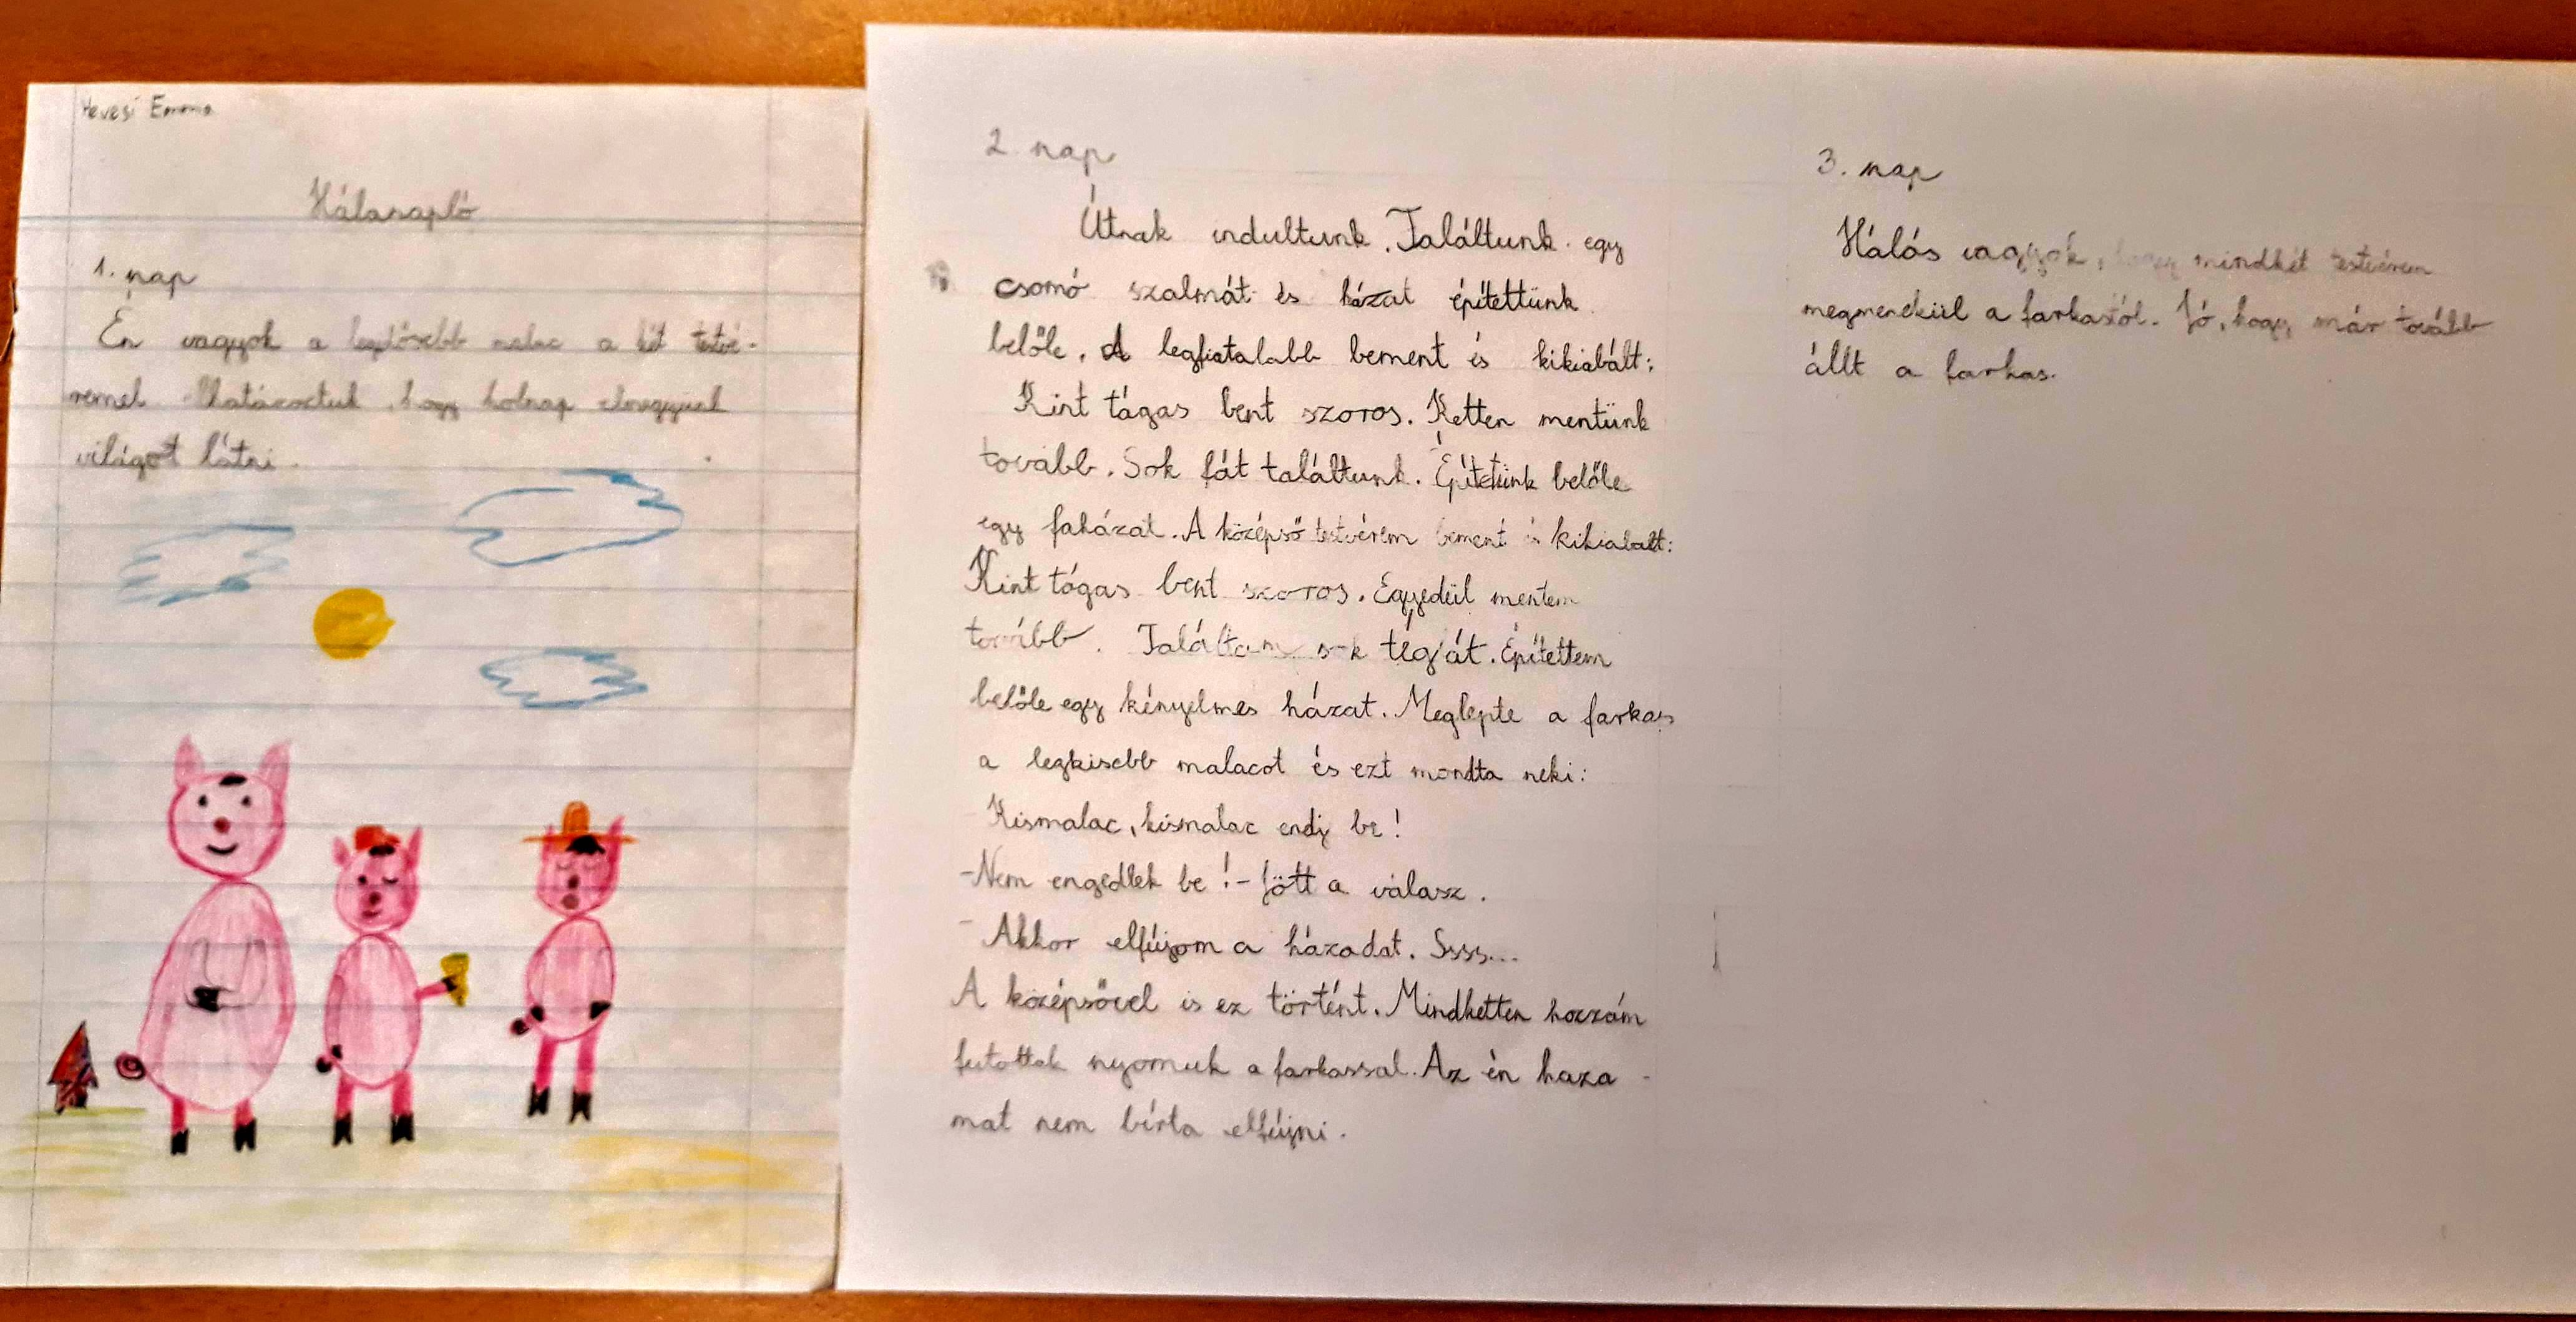 Hevesi Emma
Hálanapló
1. nap
Én vagyok a legidősebb malac a két testvé-
remel Elhatároztuk, hogy holnap elmegyünk
világot látni.
2. nap
Útnak indultunk. Találtunk egy
csomó szalmát és házat építettünk
belőle. A legfiatalabb bement és kikiabált:
Kint tágas bent szoros. Ketten mentünk
tovább. Sok fát találtunk. Építetünk belőle
egy faházat. A középső testvérem bement és kikiabált:
Kint tágas bent szoros. Egyedül mentem
tovább. Találtam sok tégját. Építettem
belőle egy kényelmes házat. Meglepte a farkas
a legkisebb malacot és ezt mondta neki:
Kismalac, kismalac endj be!
-Nem engedlek be! - Jött a válasz.
- Akkor elfújom a házadat. Ssss...
A középsővel is ez történt. Mindketten hozzám
futottak nyomuk a farkassal. Az én háza-
mat nem bírta elfújni.
3. nap
Hálás vagyok, hogy mindkét testvérem
megmenekül a farkastól. Jó, hogy már tovább
állt a farkas.